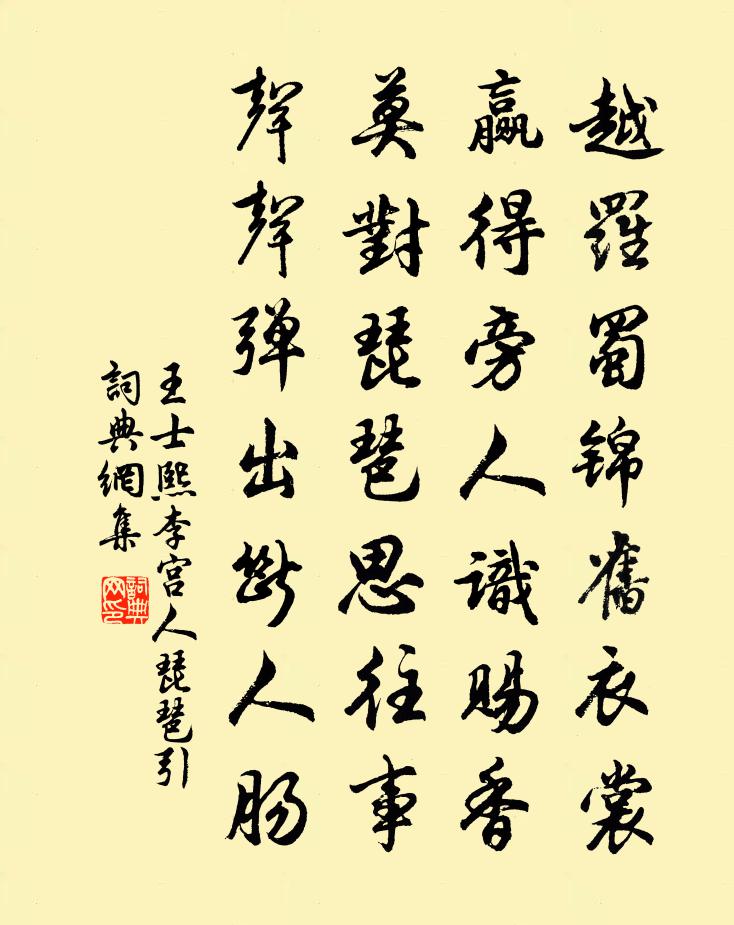 越羅蜀錦舊衣裳
贏得旁人識賜香
莫對琵琶思往事
聲聲彈出斷人腸
王士熙李宮人琵琶引
詞典網集
詞典网印